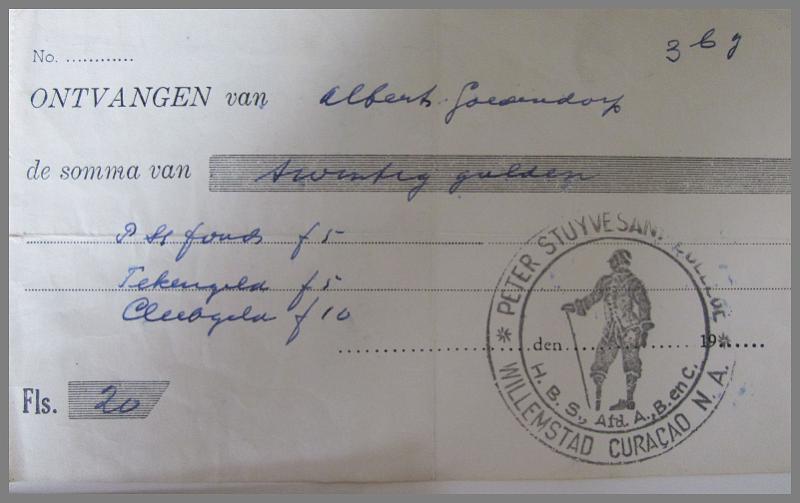 No. ............
3 b g
ONTVANGEN van Albert
de somma van twintig gulden
P St fonds f 5
Tekengeld f 5
Clubgeld f 10
den 19
Fls. 20
* PETER STUYVESANT COLLEGE *
H. B. S., Afd. A., B. en C.
WILLEMSTAD CURAÇAO N. A.